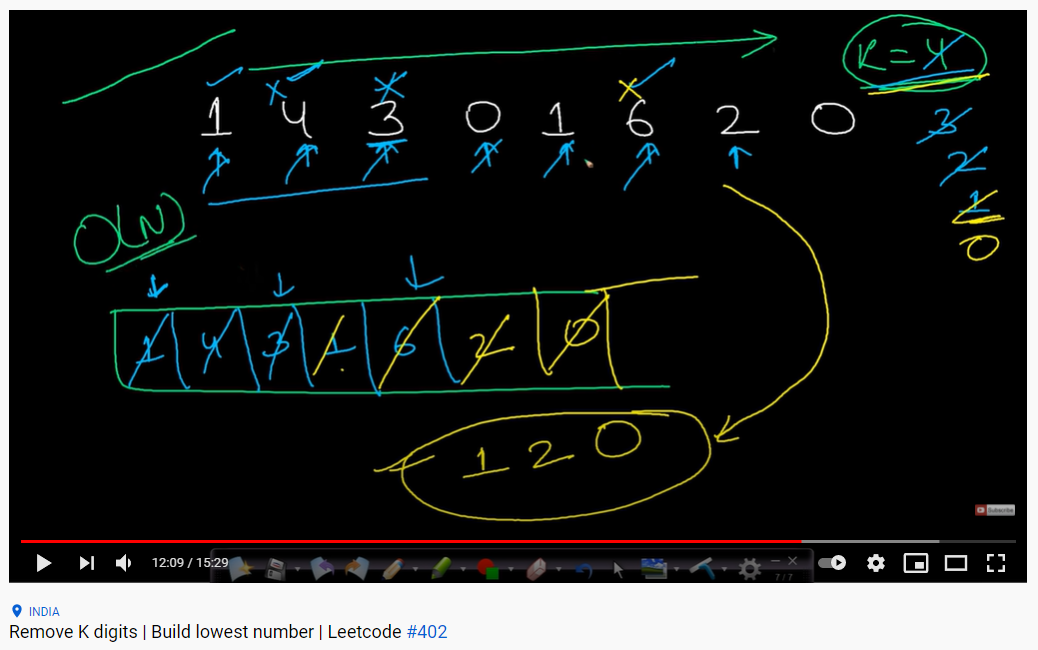 K = 4
1 4 3 0 1 6 2 0
3
2
1
0
O(N)
1 4 3 1 6 2 0
1 2 0
Subscribe
12:09 / 15:29
7 / 7
INDIA
Remove K digits | Build lowest number | Leetcode #402